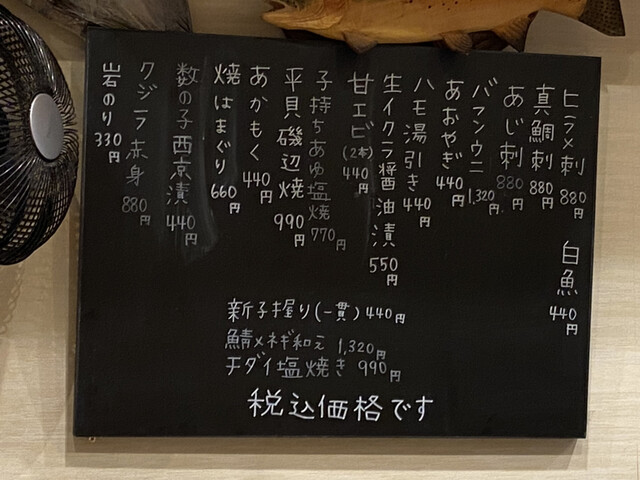 ヒラメ刺 880円
真鯛刺 880円
あじ刺 880円
バフンウニ 1,320円
あおやぎ 440円
ハモ湯引き 440円
生イクラ醤油漬 550円
甘エビ(2本) 440円
子持ちあゆ塩焼 770円
平貝磯辺焼 990円
あかもく 440円
焼はまぐり 660円
数の子西京漬 440円
クジラ赤身 880円
岩のり 330円
白魚 440円
新子握り(一貫)440円
鯖メネギ和え 1,320円
チダイ塩焼き 990円
税込価格です